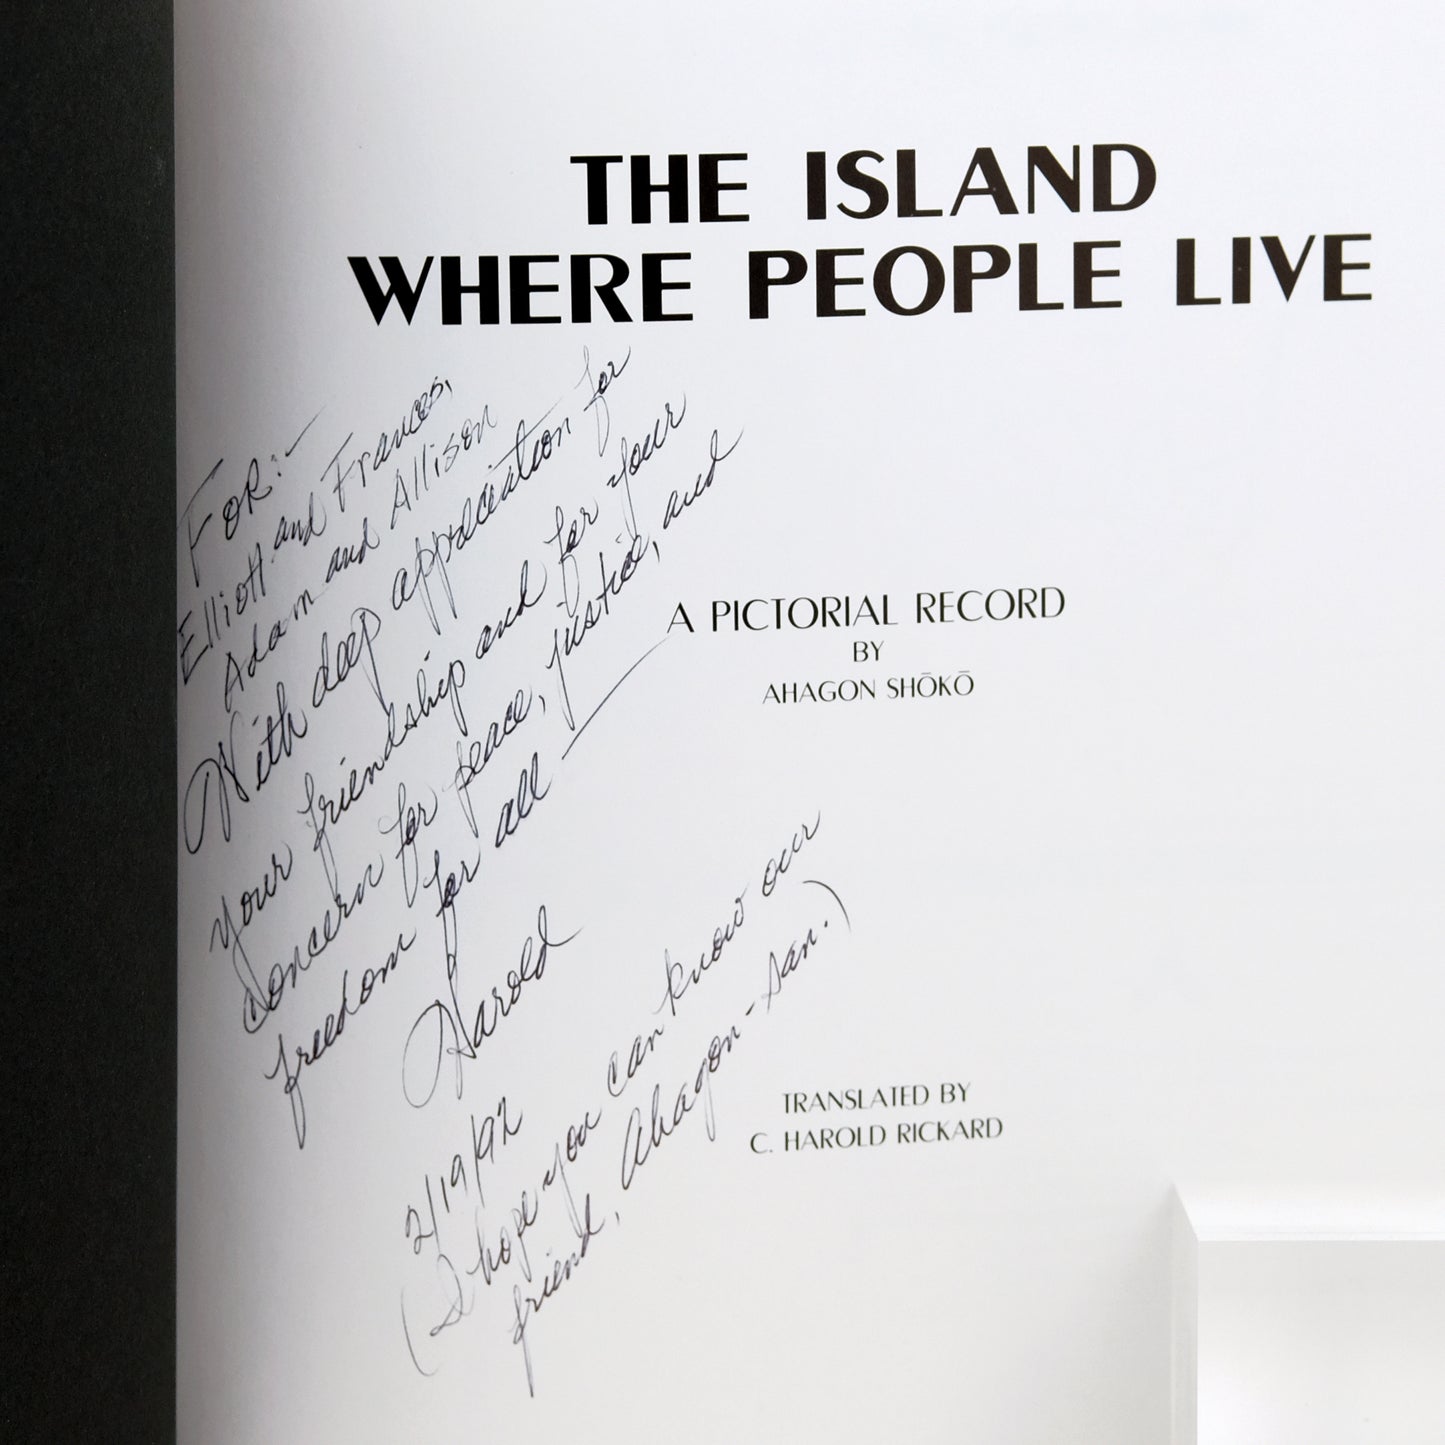 THE ISLAND
WHERE PEOPLE LIVE
FOR:-
Elliott and Frances,
Adam and Allison
With deep appreciation for
your friendship and for your
concern for peace, justice, and
freedom for all —
Harold
2/19/92
(I hope you can know our
friend, Ahagon-san.)
A PICTORIAL RECORD
BY
AHAGON SHŌKŌ
TRANSLATED BY
C. HAROLD RICKARD